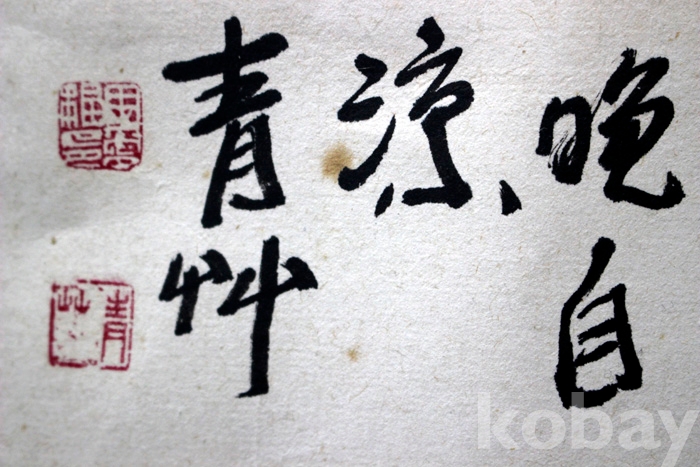 晩自
涼
青艸
青艸
kobay